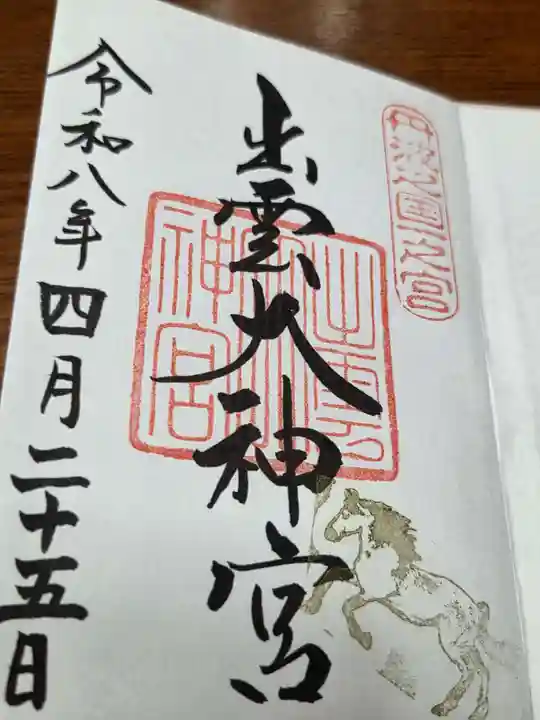 丹波國一之宮
出雲大神宮
出雲大神宮
令和八年四月二十五日